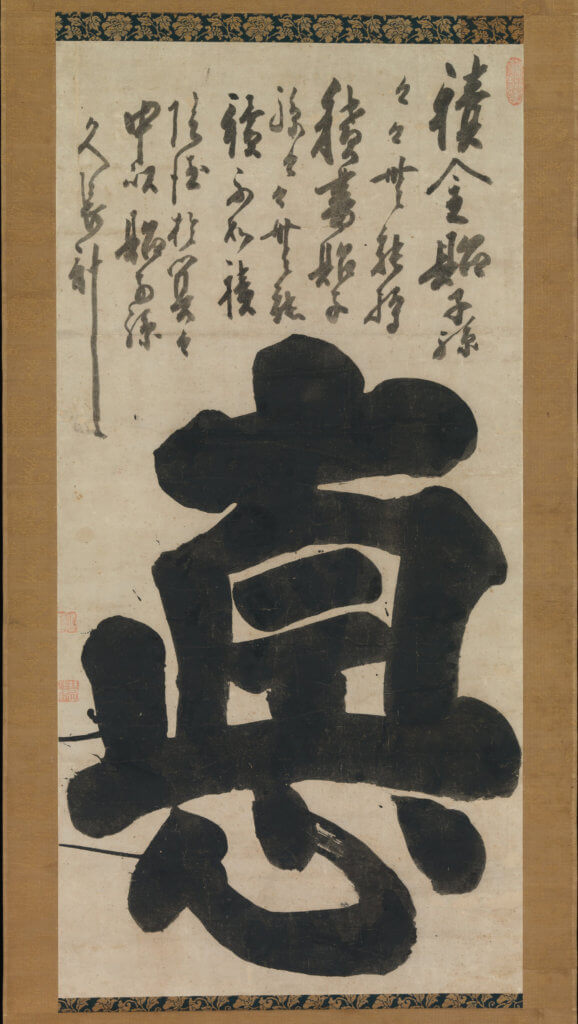 積金貽子孫
々々無能
積書貽子
孫々々無能
讀不如積
陰徳於冥々
中以貽子孫
久長計
悳